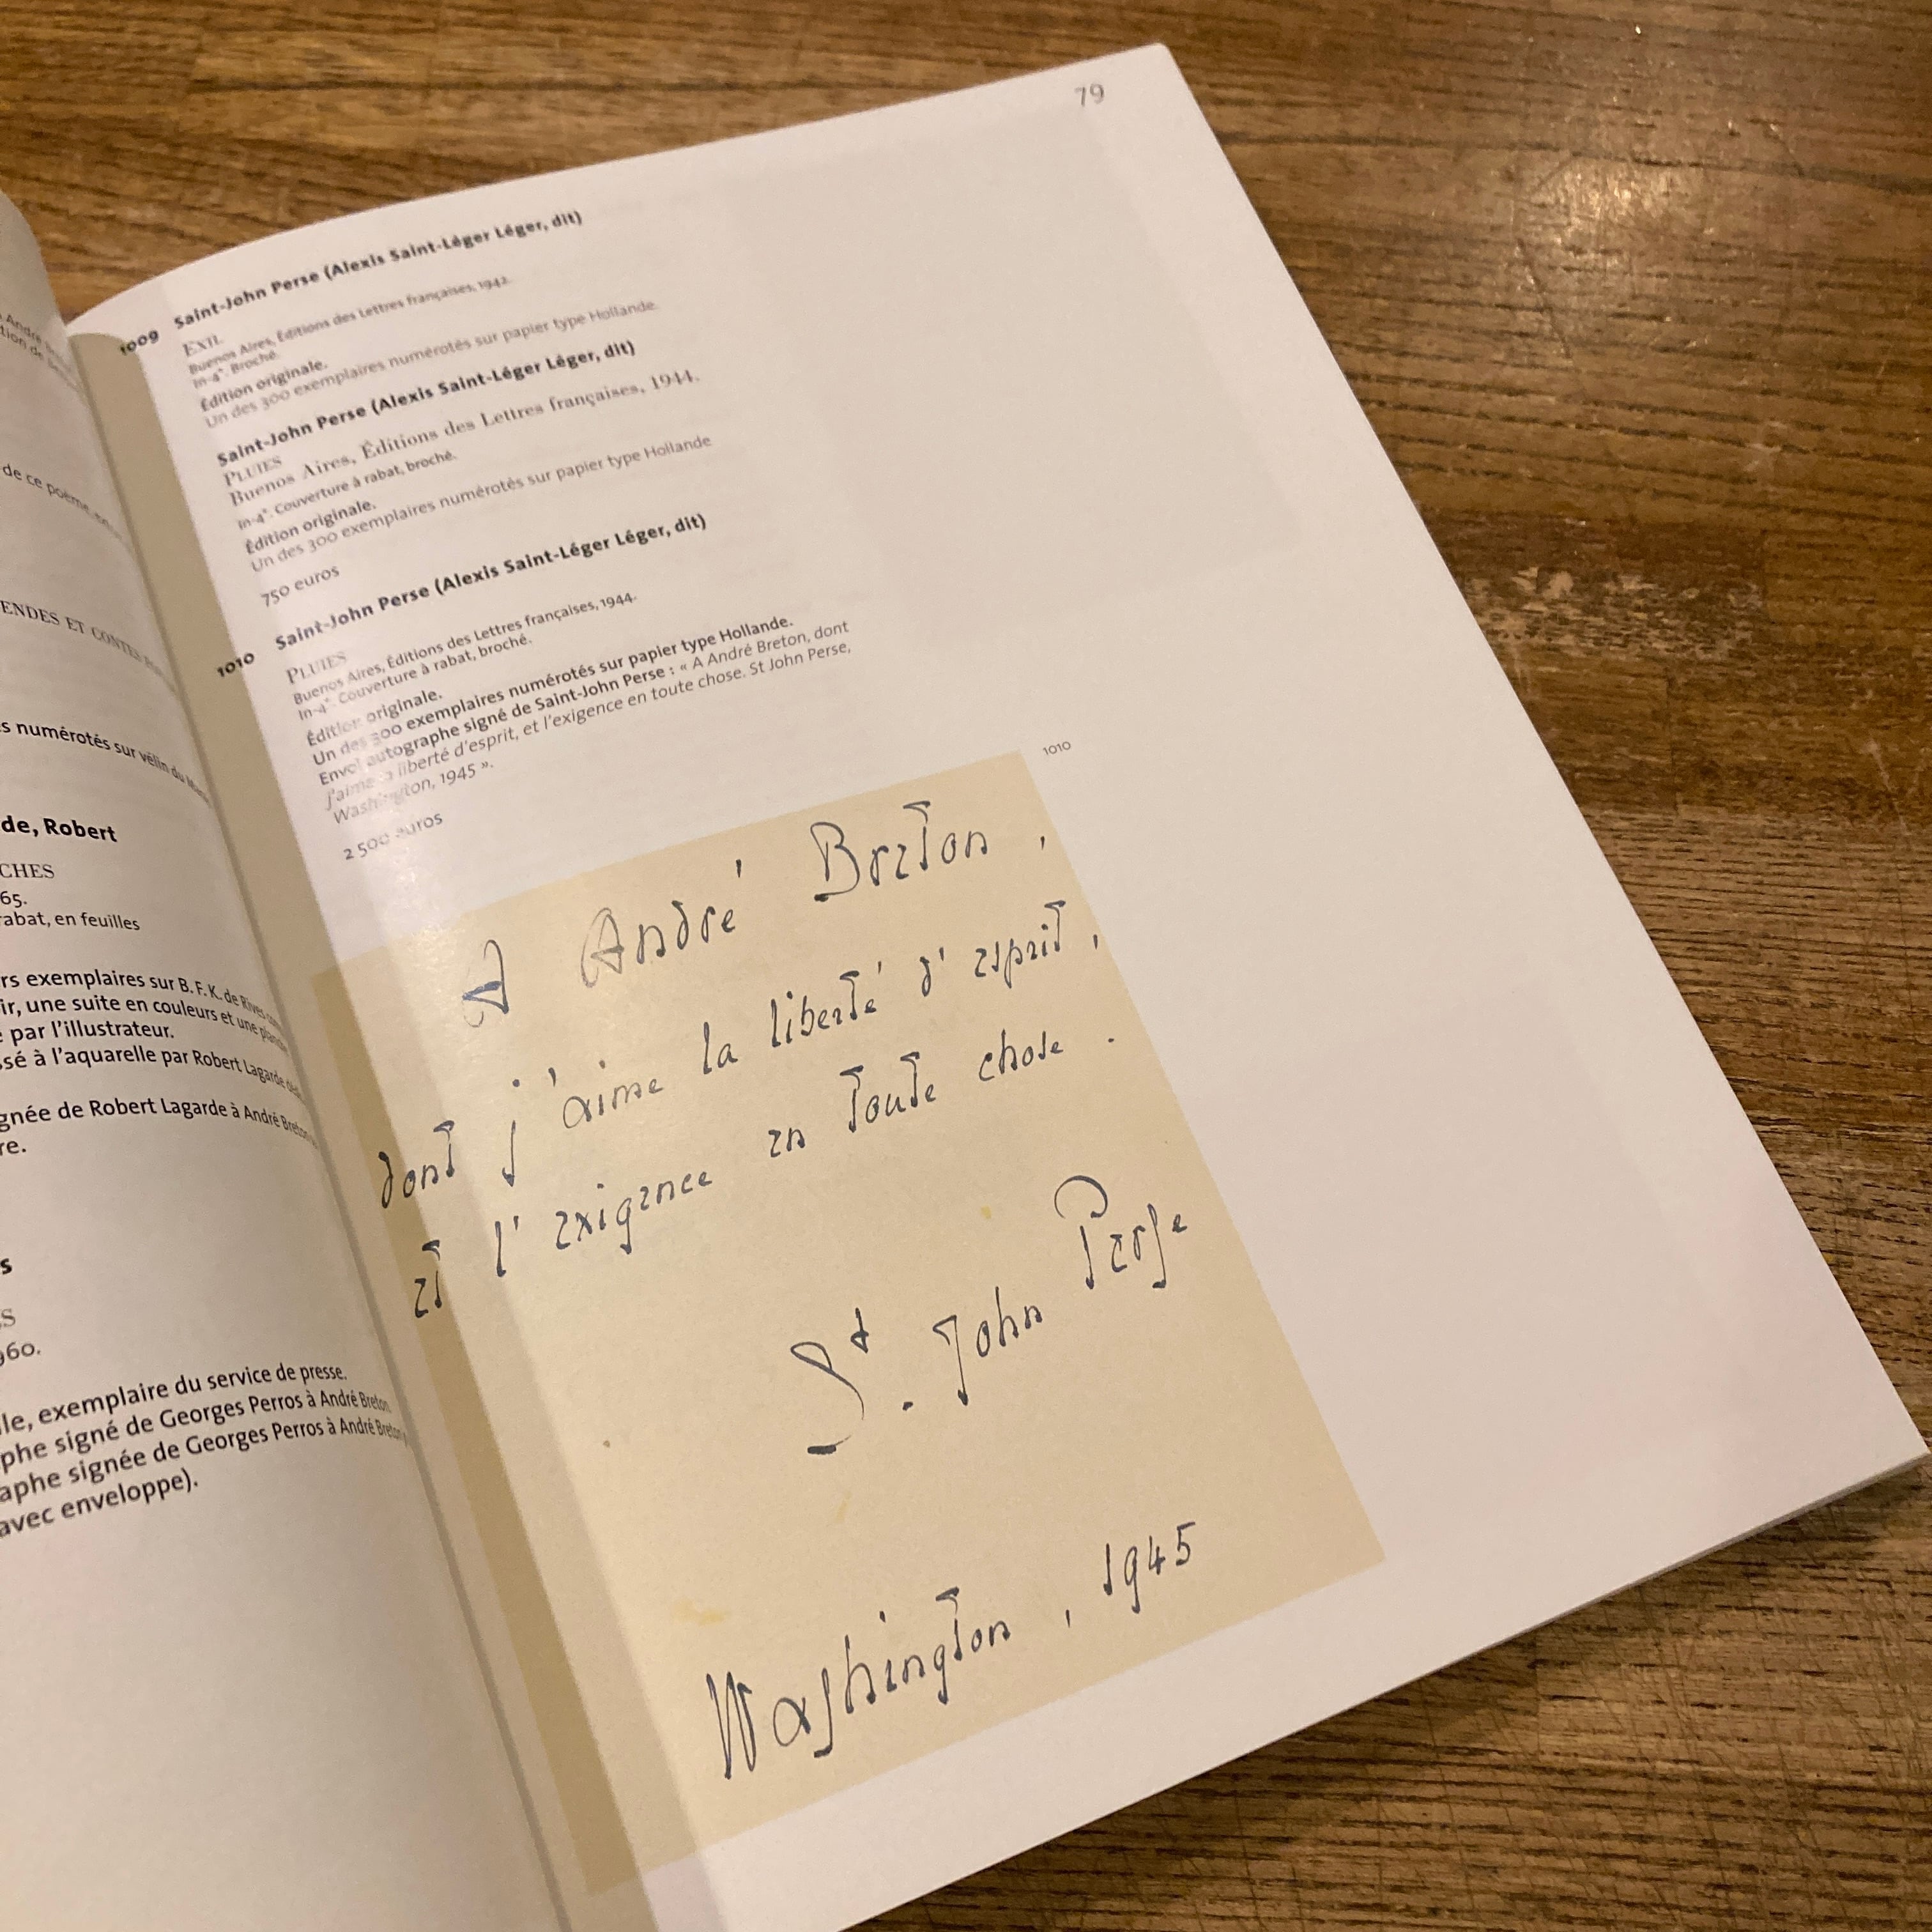 André
tion de
de ce poème,
ENDES ET CONTES
s numérotés sur vélin du
de, Robert
CHES
65.
rabat, en feuilles
rs exemplaires sur B. F. K. de Rives
ir, une suite en couleurs et une
par l'illustrateur.
ssé à l'aquarelle par Robert Lagarde
gnée de Robert Lagarde à André Breton
re.
s
S
960.
lle, exemplaire du service de presse.
phe signé de Georges Perros à André Breton
aphe signée de Georges Perros à André Breton
avec enveloppe).
79
1009 Saint-John Perse (Alexis Saint-Léger Léger, dit)
EXIL
Buenos Aires, Éditions des Lettres françaises, 1942.
In-4°. Broché.
Édition originale.
Un des 300 exemplaires numérotés sur papier type Hollande.
Saint-John Perse (Alexis Saint-Léger Léger, dit)
PLUIES
Buenos Aires, Éditions des Lettres françaises, 1944.
In-4°. Couverture à rabat, broché.
Édition originale.
Un des 300 exemplaires numérotés sur papier type Hollande
750 euros
1010 Saint-John Perse (Alexis Saint-Léger Léger, dit)
PLUIES
Buenos Aires, Éditions des Lettres françaises, 1944.
In-4°. Couverture à rabat, broché.
Édition originale.
Un des 300 exemplaires numérotés sur papier type Hollande.
Envoi autographe signé de Saint-John Perse : « A André Breton, dont
j'aime la liberté d'esprit, et l'exigence en toute chose. St John Perse,
Washington, 1945 ».
2 500 euros
1010
A André Breton,
dont j'aime la liberté d'esprit,
et l'exigence en toute chose.
St. John Perse
Washington, 1945